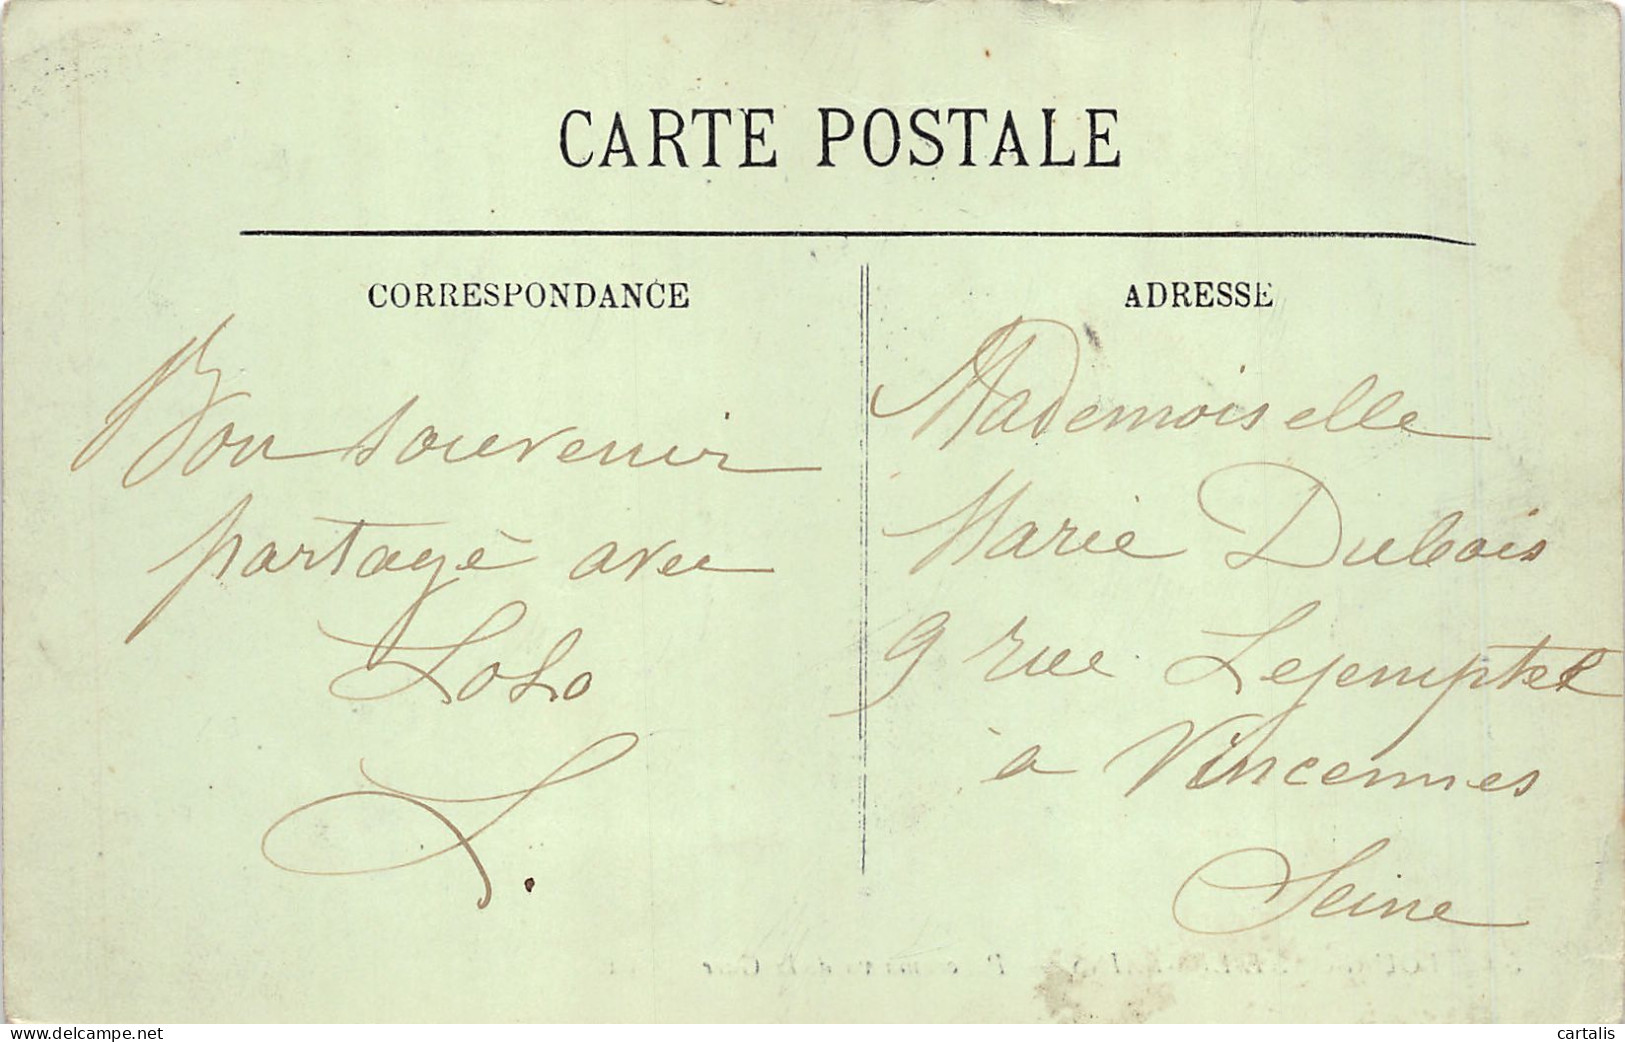 CARTE POSTALE
CORRESPONDANCE
ADRESSE
Bon souvenir
partagé avec
Lolo
L.
Mademoiselle
Marie Dubois
9 rue Lejemptel
à Vincennes
Seine
www.delcampe.net
cartalis